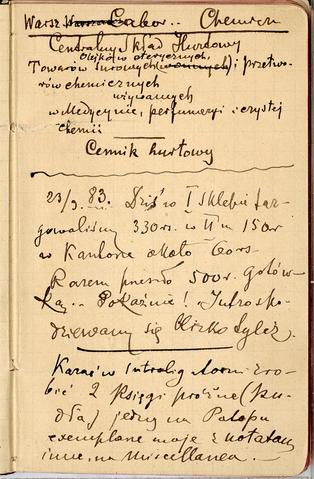 Warsz. Labor.. Chemiczn
Centralny Skład Hurtowy
Olejków eterycznych,
Towarów surowych (wonnych) i przetwo-
rów chemicznych
używanych
w Medycynie, perfumeryi i czystej
chemii
Cennik hurtowy
23/9. 83. Dziś w I sklepie tar-
gowaliśmy 330 rs. w II m 150 rs
w Kantorze około 60 rs
Razem przeszło 500 r. gotów-
ką.. Pokaźnie! Jutro spo-
dziewamy się blisko tyleż.
Kazać w introligatorni zro-
bić 2 Księgi próżne
jedną na
exemplarze moje z notatami
inne, na Miscellanea.